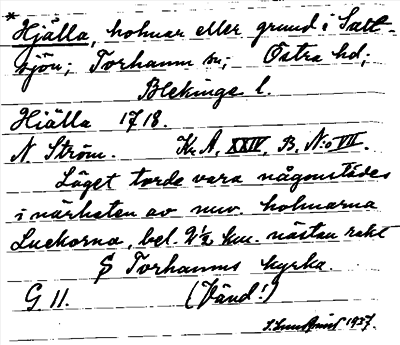 * Hjälla, holmar eller grund i Salt-
sjön; Torhamn sn; Östra hd;
Blekinge l.
Hiälla 1718.
N. Ström. Kr. A, XXIV, B, N:o VII.
Läget torde vara någonstädes
i närheten av nuv. holmarna
Luckorna, bel. 2 1/2 km. nästan rakt
S Torhamns kyrka.
G 11. (Vänd!)
1937.